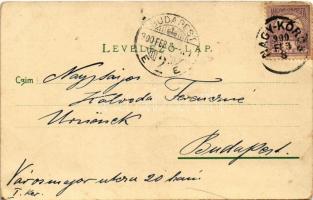 LEVELEZŐ-LAP.
BUDAPEST
900 FEB
NAGY-KŐRÖS
900 FEB
Czim: Nagyságos
Kalvoda Ferenczné
Úrnőnek
Budapest.
Városmajor utcza 20 szám
I. ker.